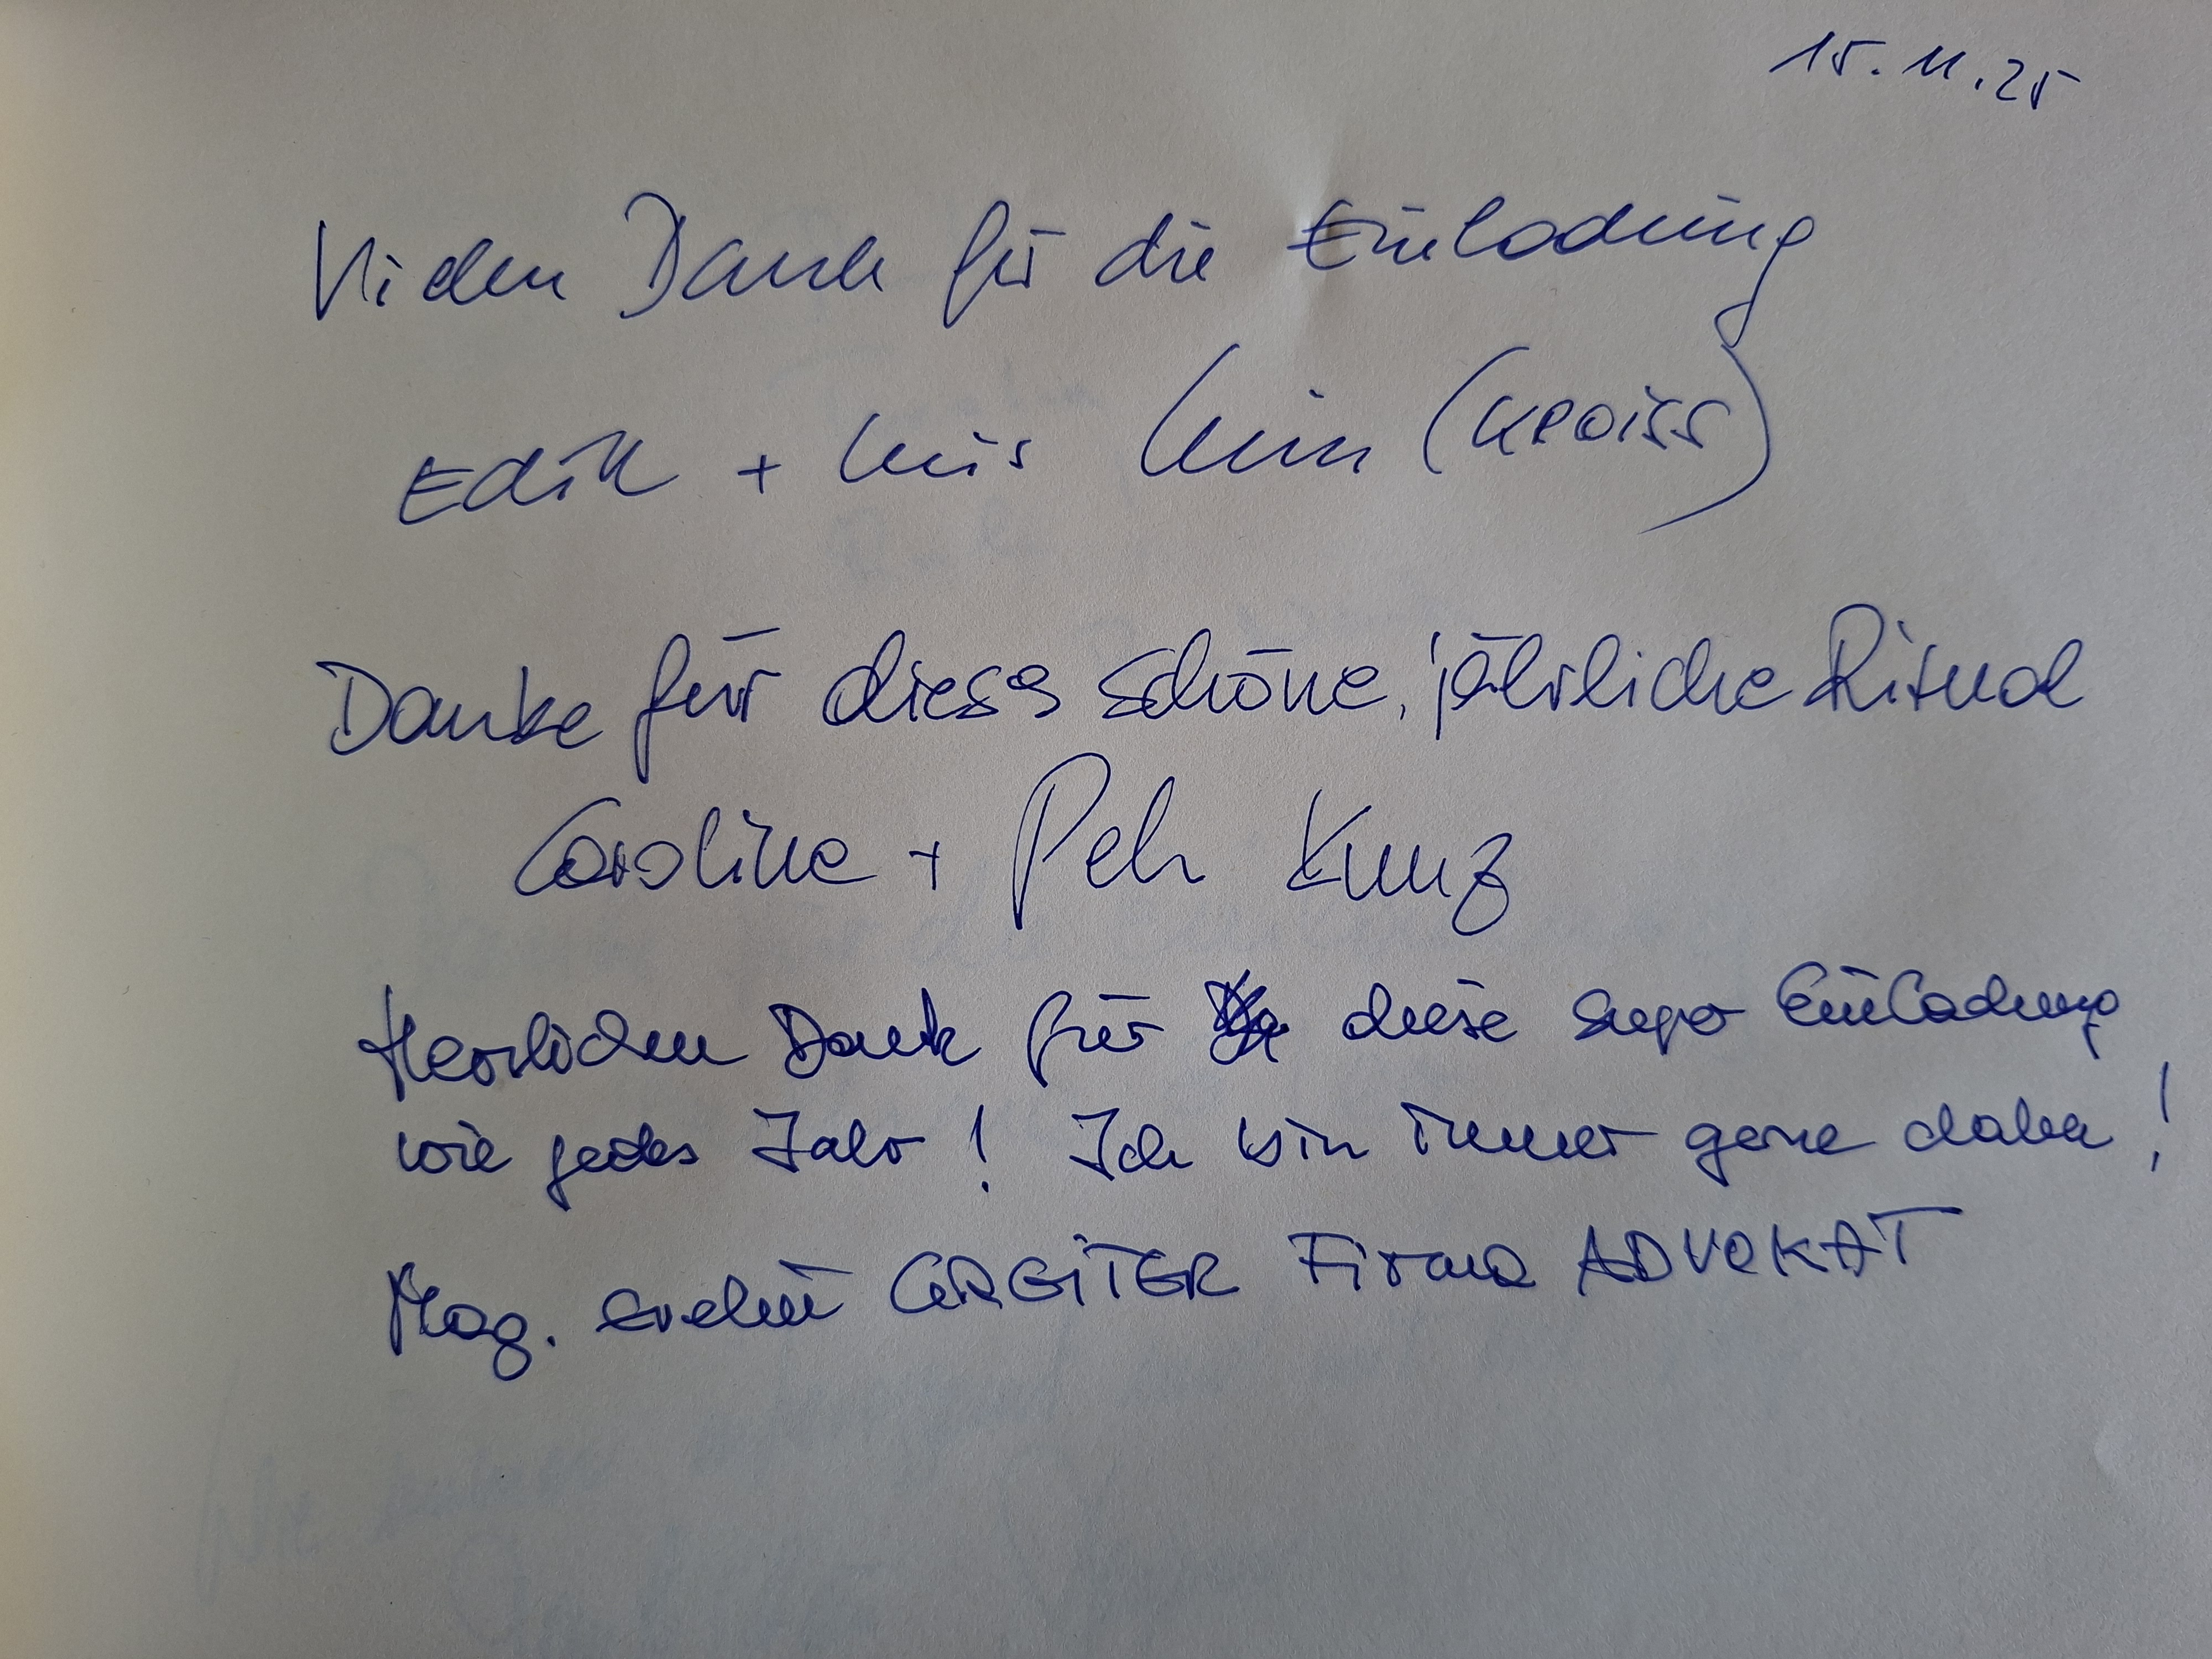 15.11.25
Vielen Dank für die Einladung
Edith + (Kroiss)
Danke für dieses schöne, jährliche Ritual
Caroline + Peter Kunz
Herzlichen Dank für diese super Einladung
wie jedes Jahr! Ich bin immer gerne dabei!
Mag. Evelin GREITER Firma ADVOKAT